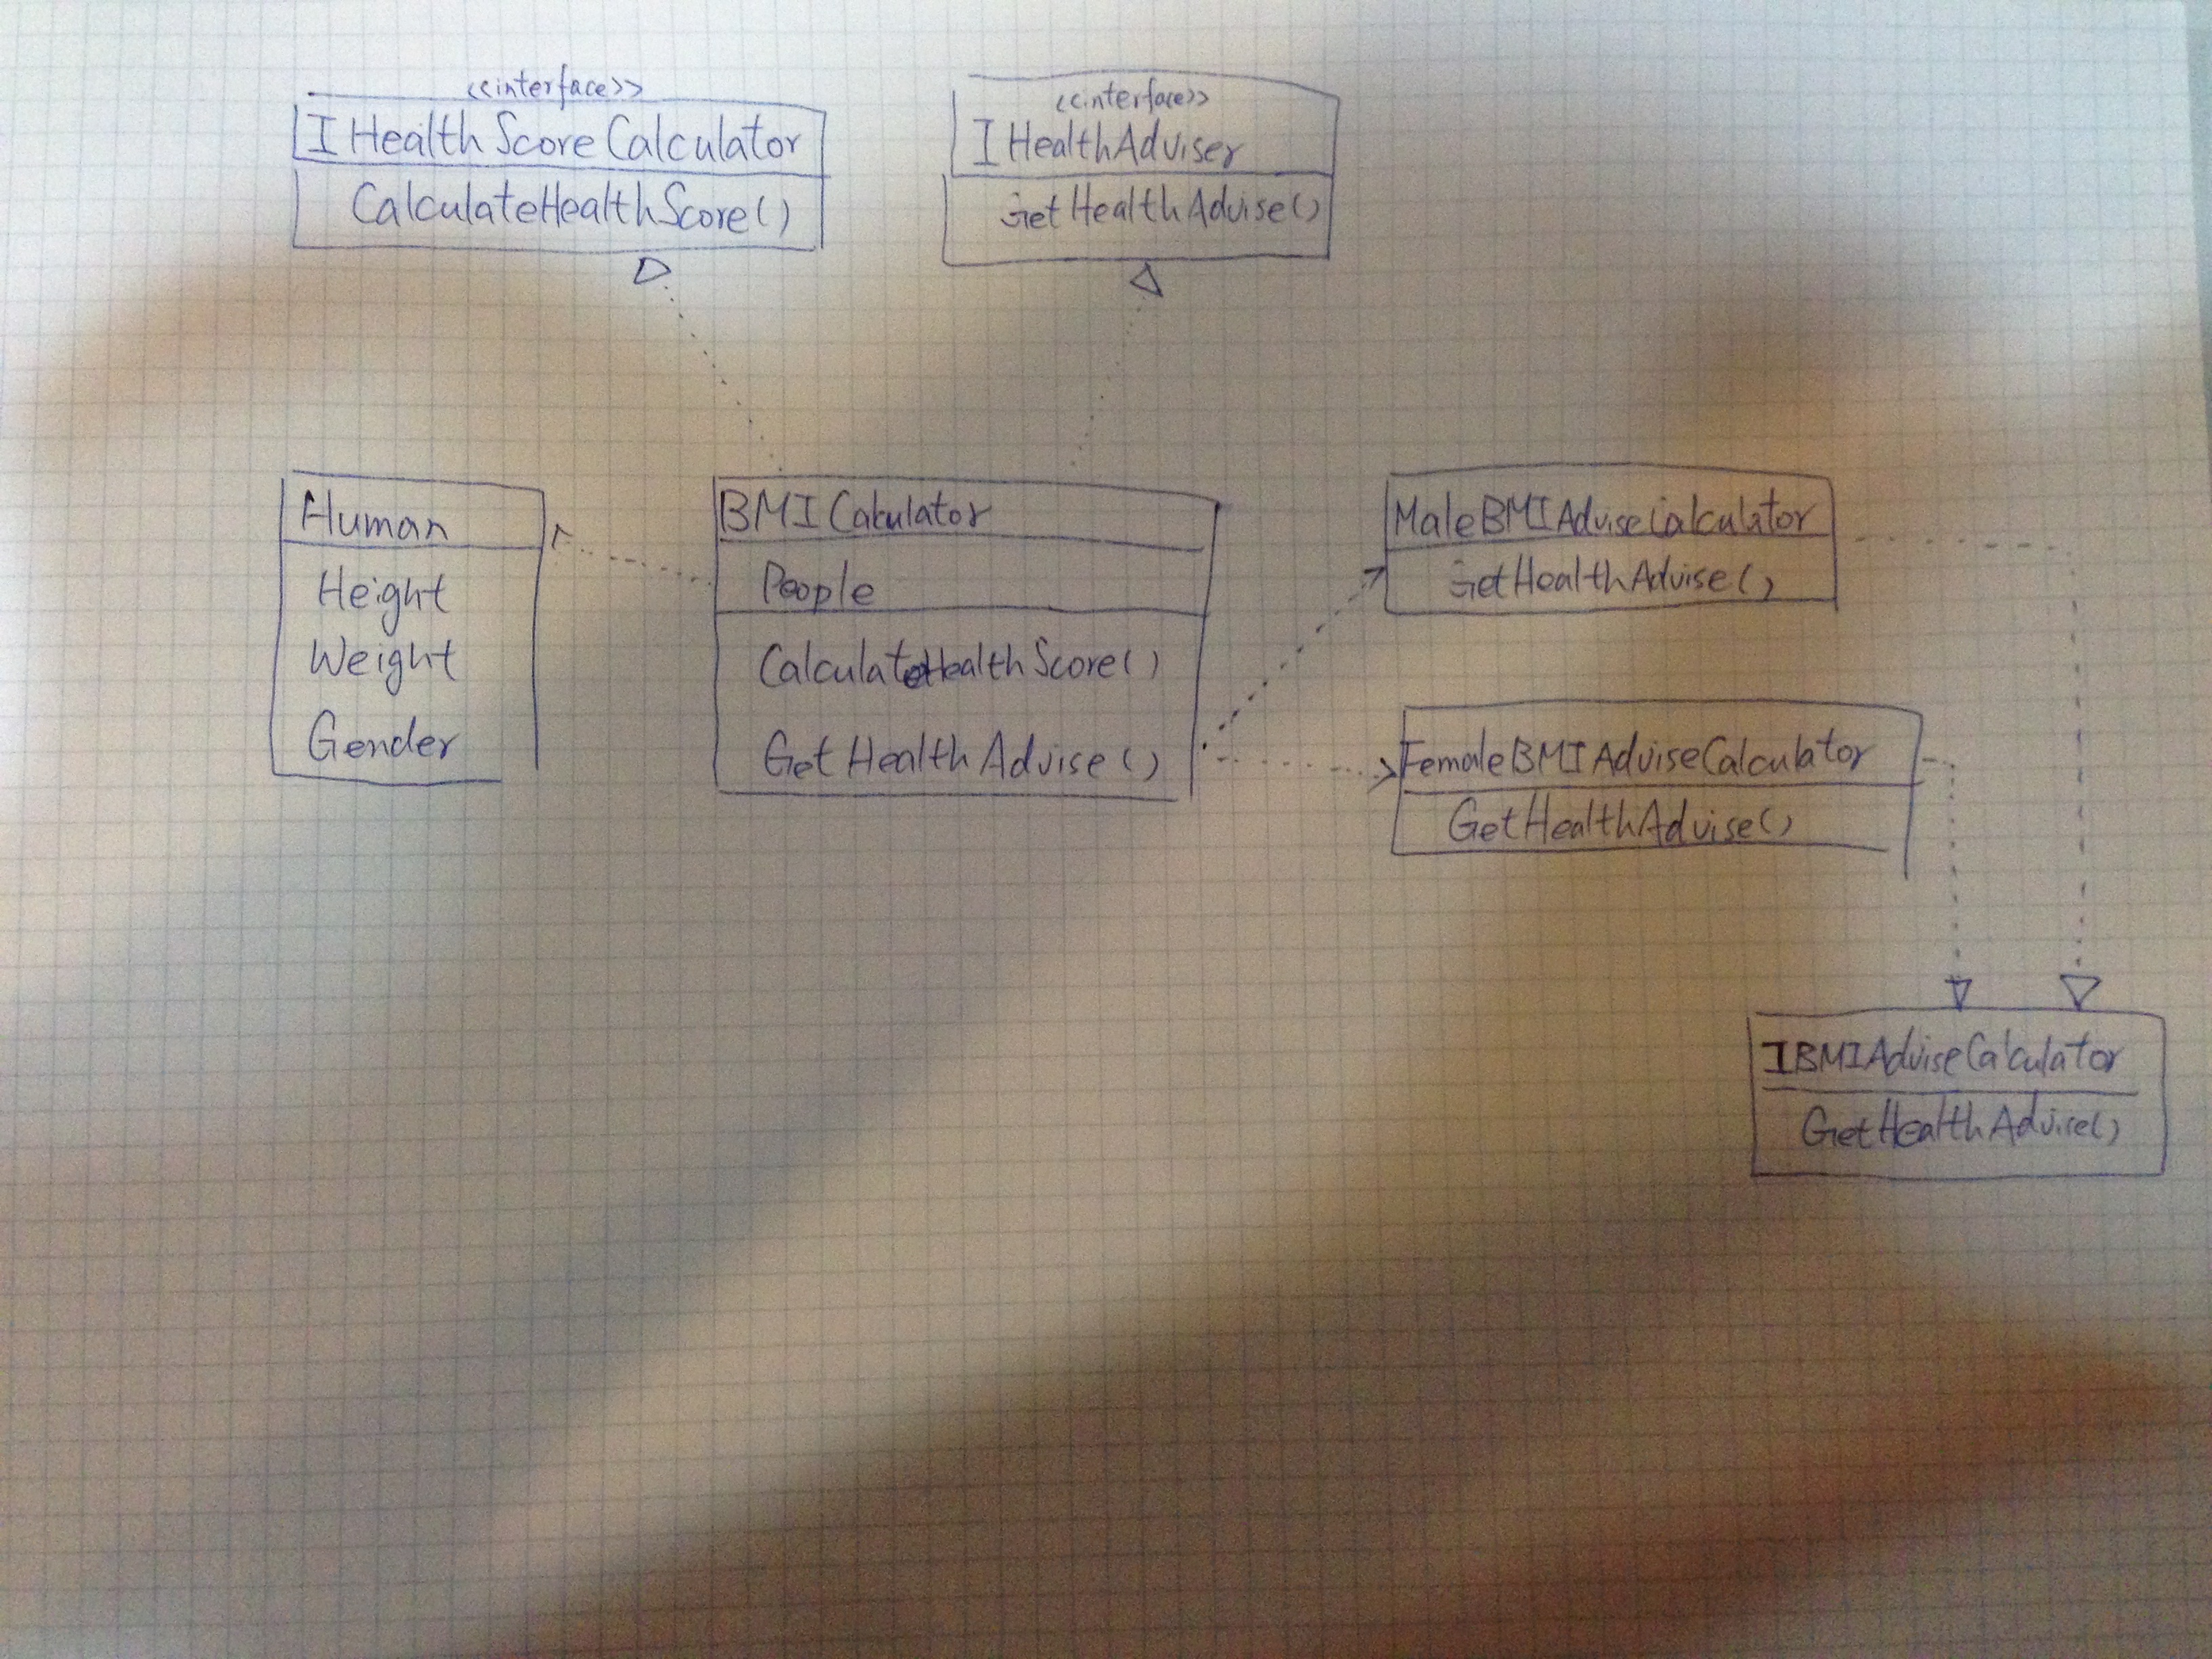 <<interface>>
IHealthScoreCalculator
CalculateHealthScore()
<<interface>>
IHealthAdviser
GetHealthAdvise()
Human
Height
Weight
Gender
BMICalculator
People
CalculateHealthScore()
GetHealthAdvise()
MaleBMIAdviseCalculator
GetHealthAdvise()
FemaleBMIAdviseCalculator
GetHealthAdvise()
IBMIAdviseCalculator
GetHealthAdvise()